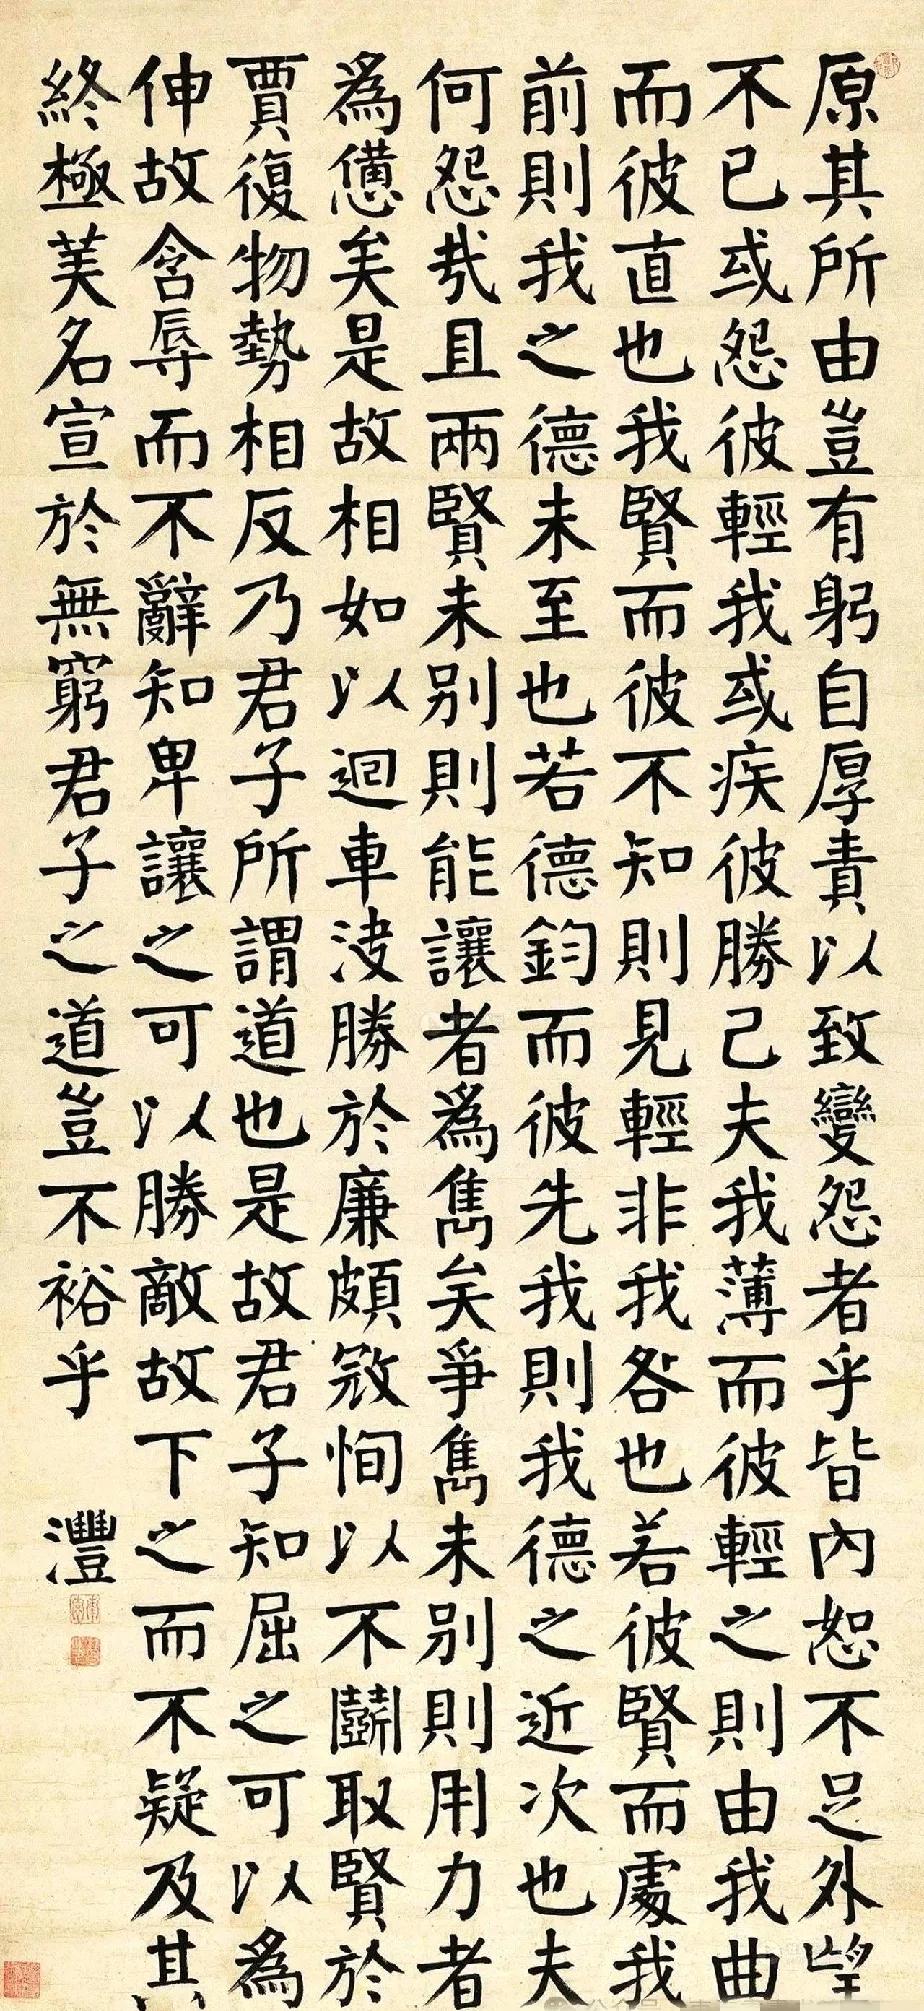 原其所由豈有躬自厚責以致變怨者乎皆內恕不足外望
不已或怨彼輕我或疾彼勝己夫我薄而彼輕之則由我曲
而彼直也我賢而彼不知則見輕非我咎也若彼賢而處我
前則我之德未至也若德鈞而彼先我則我德之近次也夫
何怨哉且兩賢未別則能讓者為雋矣爭雋未別則用力者
為憊矣是故相如以迴車決勝於廉頗寇恂以不鬭取賢於
賈復物勢相反乃君子所謂道也是故君子知屈之可以為
伸故含辱而不辭知卑讓之可以勝敵故下之而不疑及其
終極美名宣於無窮君子之道豈不裕乎
灃